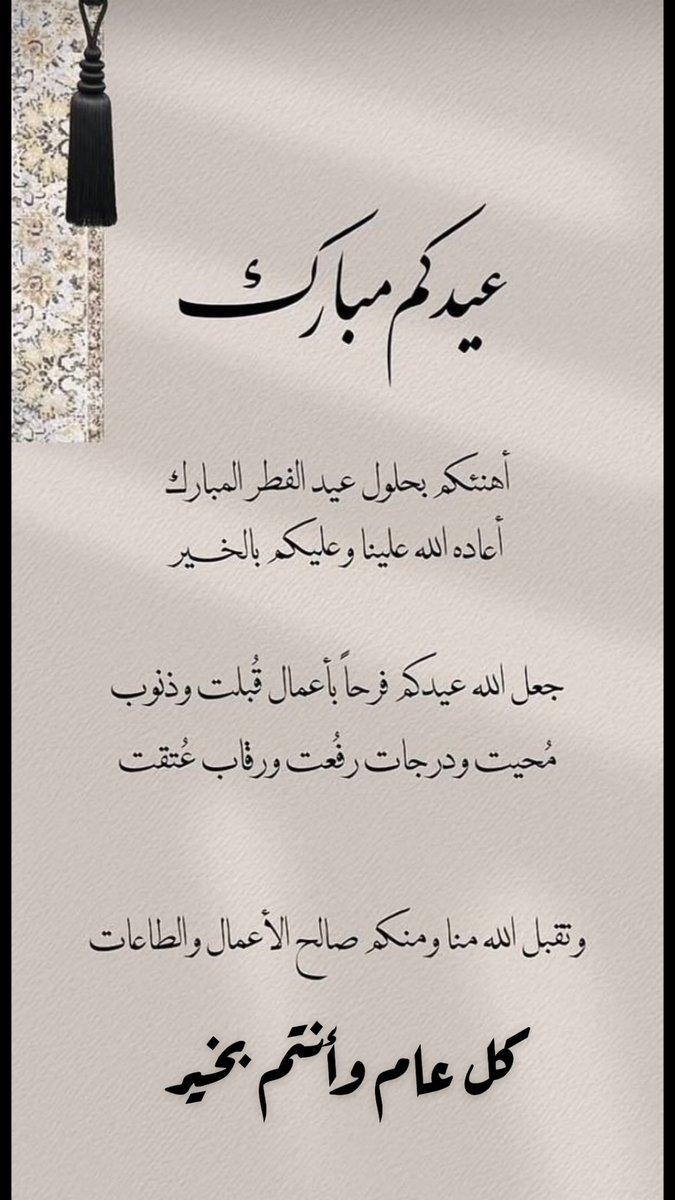 عيدكم مبارك
أهنئكم بحلول عيد الفطر المبارك
أعاده الله علينا وعليكم بالخير
جعل الله عيدكم فرحاً بأعمال قُبلت وذنوب
مُحيت ودرجات رفُعت ورقاب عُتقت
وتقبل الله منا ومنكم صالح الأعمال والطاعات
كل عام وأنتم بخير